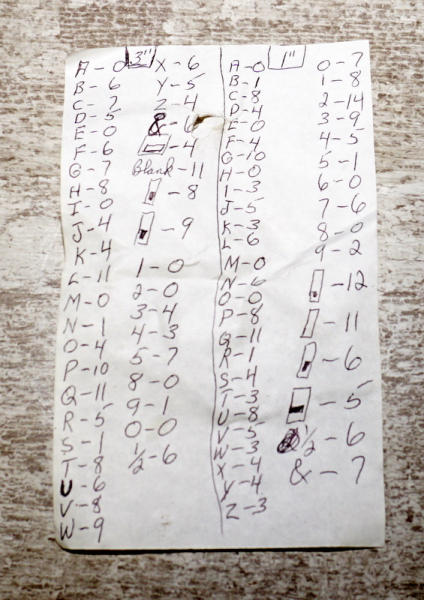 3"
A-0
B-6
C-7
D-5
E-0
F-6
G-7
H-8
I-0
J-4
K-4
L-11
M-0
N-1
O-4
P-10
Q-11
R-5
S-1
T-8
U-6
V-8
W-9
X-6
Y-5
Z-4
&-6
-4
Blank-11
-8
-9
1-0
2-0
3-4
4-3
5-7
8-0
9-1
0-0
½-6
1"
A-0
B-1
C-8
D-4
E-0
F-4
G-10
H-0
I-3
J-5
K-3
L-6
M-0
N-6
O-0
P-8
Q-11
R-1
S-4
T-3
U-8
V-5
W-3
X-4
Y-4
Z-3
0-7
1-8
2-14
3-9
4-5
5-1
6-0
7-6
8-0
9-2
-12
-11
-6
-5
½-6
&-7